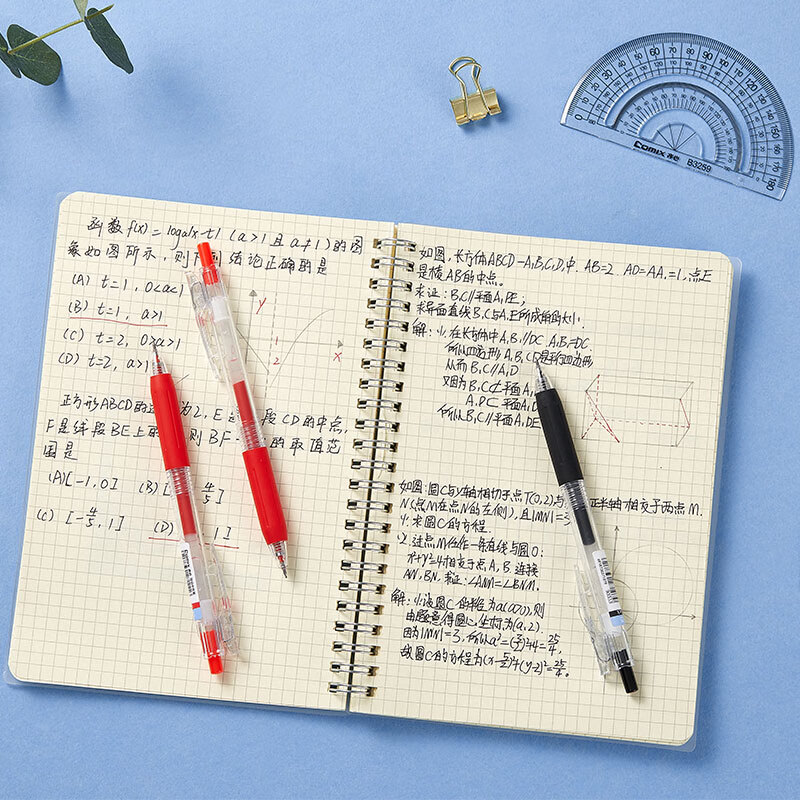 函数 f(x) = loga|x-t| (a>1 且 a≠1) 的图
象如图所示,则下列结论正确的是
(A) t=1, 0<a<1
(B) t=1, a>1
(C) t=2, 0>a>1
(D) t=2, a>1
y
x
2
正方形ABCD的边 为2, E 段CD的中点,
F是线段BE上的 则 BF 的取值范
围是
(A)[-1,0] (B)[ 4/5]
(C) [-4/5, 1] (D) 1]
如图,长方体ABCD-A₁B₁C₁D₁中. AB=2. AD=AA₁=1,点E
是棱AB的中点。
求证: B₁C//平面A₁DE;
求异面直线B₁C与A₁E所成角的大小.
解: 在长方体中A₁B₁//DC A₁B₁=DC
所以四边形A₁B₁CD是平行四边形
从而B₁C//A₁D
又因为B₁C⊄平面A₁
A₁D⊂平面A₁D
所以B₁C//平面A₁DE
如图:圆C与y轴相切于点T(0,2)与 正半轴相交于两点M.
N(点M在点N的左侧),且|MN|=3
求圆C的方程
2. 过点M任作一条直线与圆O:
x²+y²=4相交于点A, B 连接
AN, BN. 求证:∠ANM=∠BNM.
解: 设圆C的半径为a(a>0),则
由题意得圆心坐标为(a,2).
因为|MN|=3, 所以a²=(3/2)²+4=25/4,
故圆C的方程为(x-5/2)²+(y-2)²=25/4。
Comix 齐心 B3259